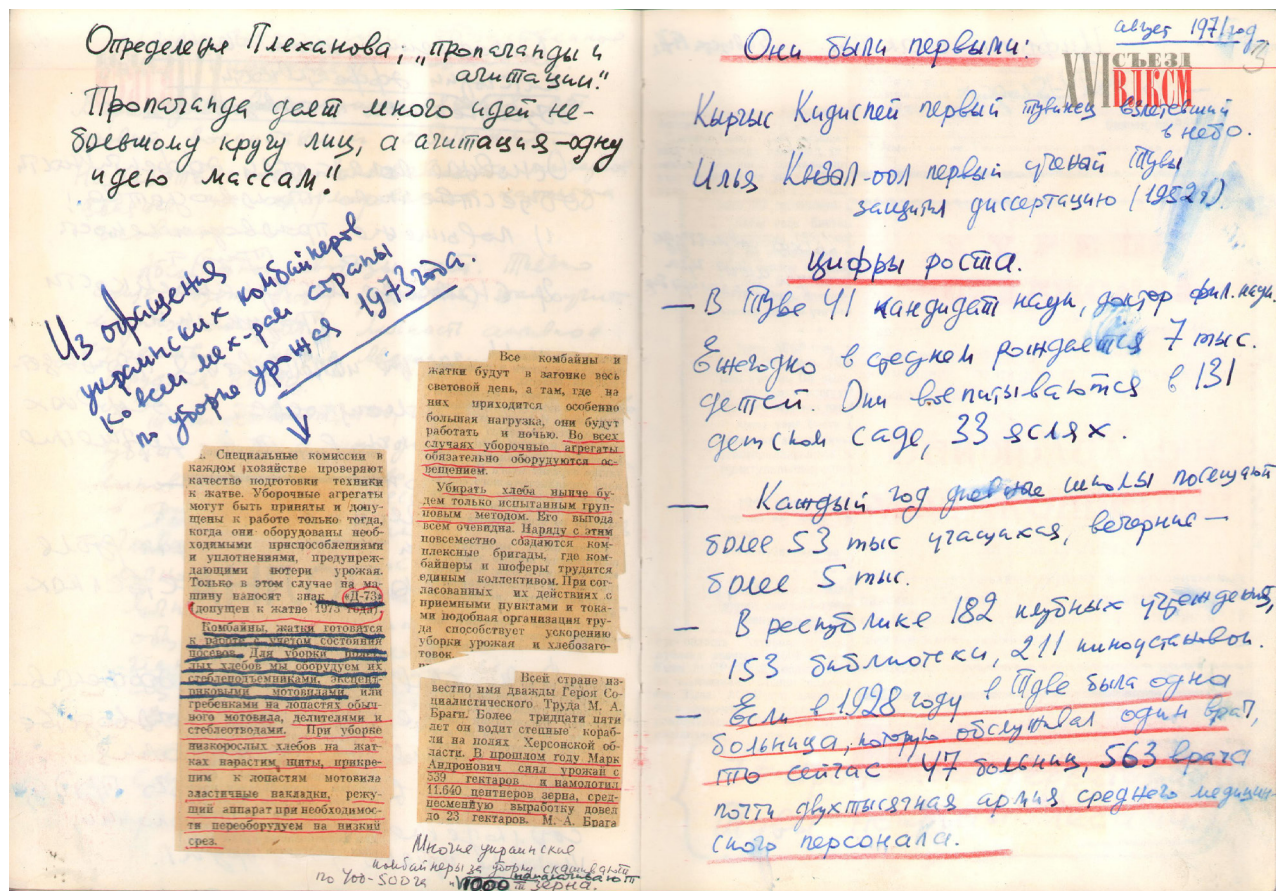 Определения Плеханова, „пропаганды и
агитации".
Пропаганда дает много идей не-
большому кругу лиц, а агитация – одну
идею массам".
Из обращения
украинских комбайнеров
ко всем мех-рам страны
по уборке урожая 1973 года.
. Специальные комиссии в
каждом хозяйстве проверяют
качество подготовки техники
к жатве. Уборочные агрегаты
могут быть приняты и допу-
щены к работе только тогда,
когда они оборудованы необ-
ходимыми приспособлениями
и уплотнениями, предупреж-
дающими потери урожая.
Только в этом случае на ма-
шину наносят знак «Д-73»
(допущен к жатве 1973 года).
Комбайны, жатки готовятся
к работе с учетом состояния
посевов. Для уборки полег-
лых хлебов мы соорудуем их
стеблеподъемниками, эксцент-
риковыми мотовилами или
гребенками на лопастях обыч-
ного мотовила, делителями и
стеблеотводами. При уборке
низкорослых хлебов на жат-
ках нарастим щиты, прикре-
пим к лопастям мотовила
эластичные накладки, режу-
щий аппарат при необходимос-
ти переоборудуем на низкий
срез.
Все комбайны и
жатки будут в загонке весь
световой день, а там, где на
них приходится особенно
большая нагрузка, они будут
работать и ночью. Во всех
случаях уборочные агрегаты
обязательно оборудуются ос-
вещением.
Убирать хлеба нынче бу-
дем только испытанным груп-
повым методом. Его выгода
всем очевидна. Наряду с этим
повсеместно создаются ком-
плексные бригады, где ком-
байнеры и шоферы трудятся
единым коллективом. При сог-
ласованных их действиях с
приемными пунктами и тока-
ми подобная организация тру-
да способствует ускорению
уборки урожая и хлебозаго-
товок.
Всей стране из-
вестно имя дважды Героя Со-
циалистического Труда М. А.
Браги. Более тридцати пяти
лет он водит степные кораб-
ли на полях Херсонской об-
ласти. В прошлом году Марк
Андронович снял урожай с
539 гектаров и намолотил
11.640 центнеров зерна, сред-
несменную выработку довел
до 23 гектаров. М. А. Брага
Многие украинские
комбайнеры за уборку скашивают
по 400-500га намолачивают
1000 т зерна.
август 1971 год
3
XVI СЪЕЗД
ВЛКСМ
Они были первыми:
Кыргыс Кидиспей первый тувинец взлетевший
в небо.
Илья Кызал-оол первый ученый Тувы
защитил диссертацию (1952г).
Цифры роста.
– В Туве 41 кандидат наук, доктор фил. наук.
Ежегодно в среднем рождается 7 тыс.
детей. Они воспитываются в 131
детском саде, 33 яслях.
– Каждый год дневные школы посещают
более 53 тыс учащихся, вечерние –
более 5 тыс.
– В республике 182 клубных учреждения,
153 библиотеки, 211 киноустановок.
– Если в 1928 году в Туве была одна
больница, которую обслуживал один врач,
то сейчас 47 больниц, 563 врача
почти двухтысячная армия среднего медицин-
ского персонала.